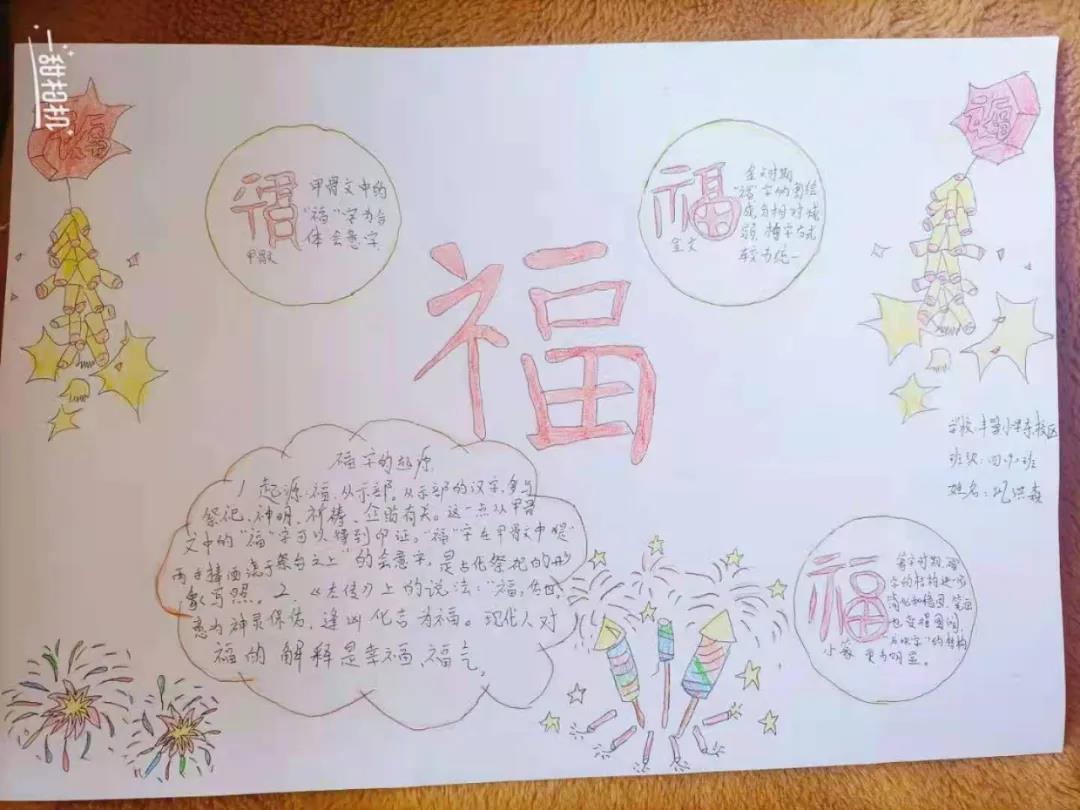 一甜相机
福
福
福
甲骨文中的
"福"字为合
体会意字
甲骨文
福
金文时期
"福"字的图绘
成分相对减
弱,构字方式
较为统一
金文
福
福字的起源
1、起源:福,从示部。从示部的汉字,多与
祭祀、神明、祈祷、企盼有关。这一点从甲骨
文中的"福"字可以得到印证。"福"字在甲骨文中是"
两手捧酒浇于祭台之上"的会意字,是古代祭祀的形
象写照。2、《左传》上的说法:"福,
意为神灵保佑,逢凶化吉为福。现代人对
福的解释是幸福、福气。
学校:丰 小学东校区
班级:四 班
姓名: 洪森
福
篆字时期,福
字的结构进一步
简化和稳固,笔画
也变得圆润,
"的结构
更为明显。
小篆